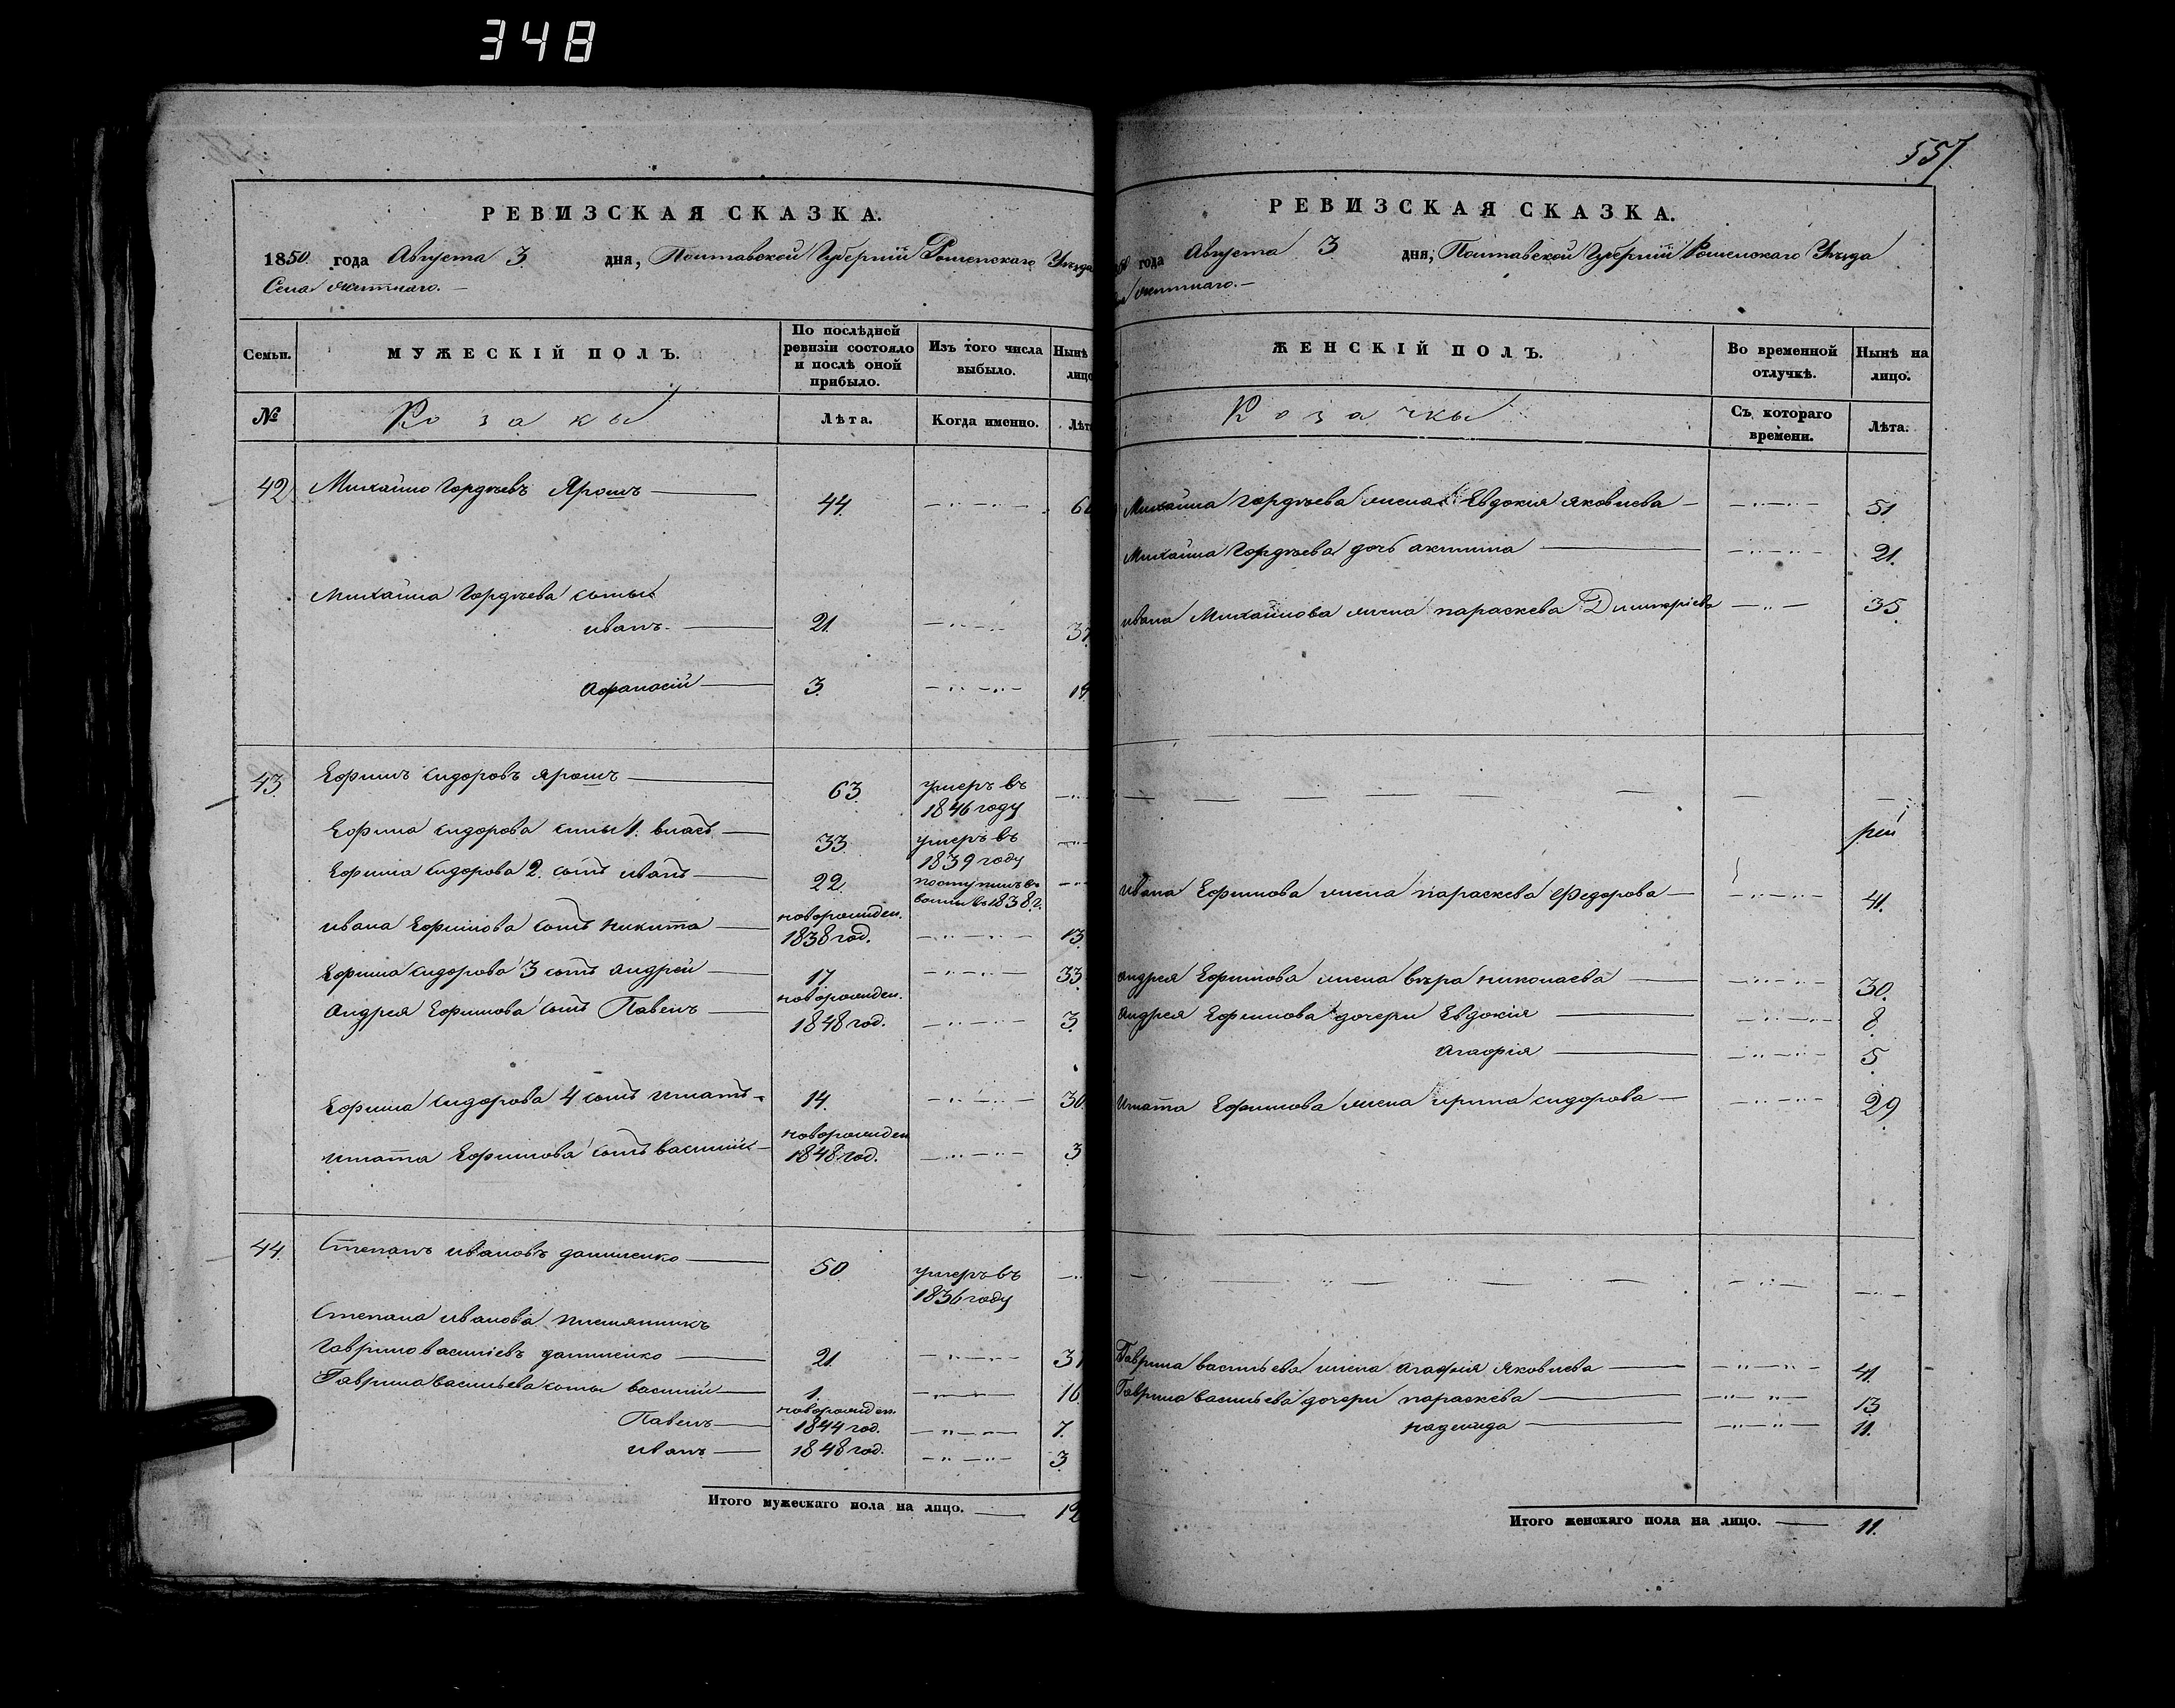 348
557
РЕВИЗСКАЯ СКАЗКА.
1850 года Августа 3 дня, Полтавской Губерніи Роменскаго Уѣзда
Села
Семьи. МУЖЕСКІЙ ПОЛЪ. По послѣдней ревизіи состояло и послѣ оной прибыло. Изъ того числа выбыло. Нынѣ лицо
№ Козаки Лѣта. Когда именно. Лѣт
42 Михайло Гордѣевъ Ярошъ 44.
Михайла Гордѣева сыны
иванъ. 21.
Афанасій 3.
43. Ефимъ сидоровъ ярошъ 63. умеръ въ
1846 году
Ефима сидорова сыны 1. власъ 33. умеръ въ
1839 году
Ефима сидорова 2. сынъ иванъ 22. поступилъ въ
1838 г.
ивана Ефимова сынъ никита новорожден.
1838 год. 13.
Ефима сидорова 3 сынъ андрей 17. 33.
Андрея Ефимова сынъ Павелъ новорожден.
1848 год. 3.
Ефима сидорова 4 сынъ игнатъ 14. 30.
игната Ефимова сынъ василий новорожден
1848 год. 3
44. Степанъ ивановъ даниленко 50. умеръ въ
1836 году
Степана иванова племянникъ
Гаврило василіевъ даниленко 21
Гаврила васильева сыны василий 1. 16.
Павелъ новорожден.
1844 год. 7.
иванъ 1848 год. 3.
Итого мужескаго пола на лицо. 12
РЕВИЗСКАЯ СКАЗКА.
года Августа 3 дня, Полтавской Губерніи Роменскаго Уѣзда
ЖЕНСКІЙ ПОЛЪ. Во временной отлучкѣ. Нынѣ на лицо.
Козачки Съ котораго времени. Лѣта.
Михайла Гордѣева жена Евдокія яковлева 51.
Михайла Гордѣева дочь акилина 21.
ивана Михайлова жена параскева Димитріева 35.
ивана Ефимова жена параскева Федорова 41.
андрея Ефимова жена вѣра николаева 30.
андрея Ефимова дочери Евдокія 8.
агафія 5.
игната Ефимова жена ирина сидорова 29
Гаврила васильева жена агафія яковлева 41.
Гаврила васильева дочери параскева 13.
надежда 11.
Итого женскаго пола на лицо. 11.